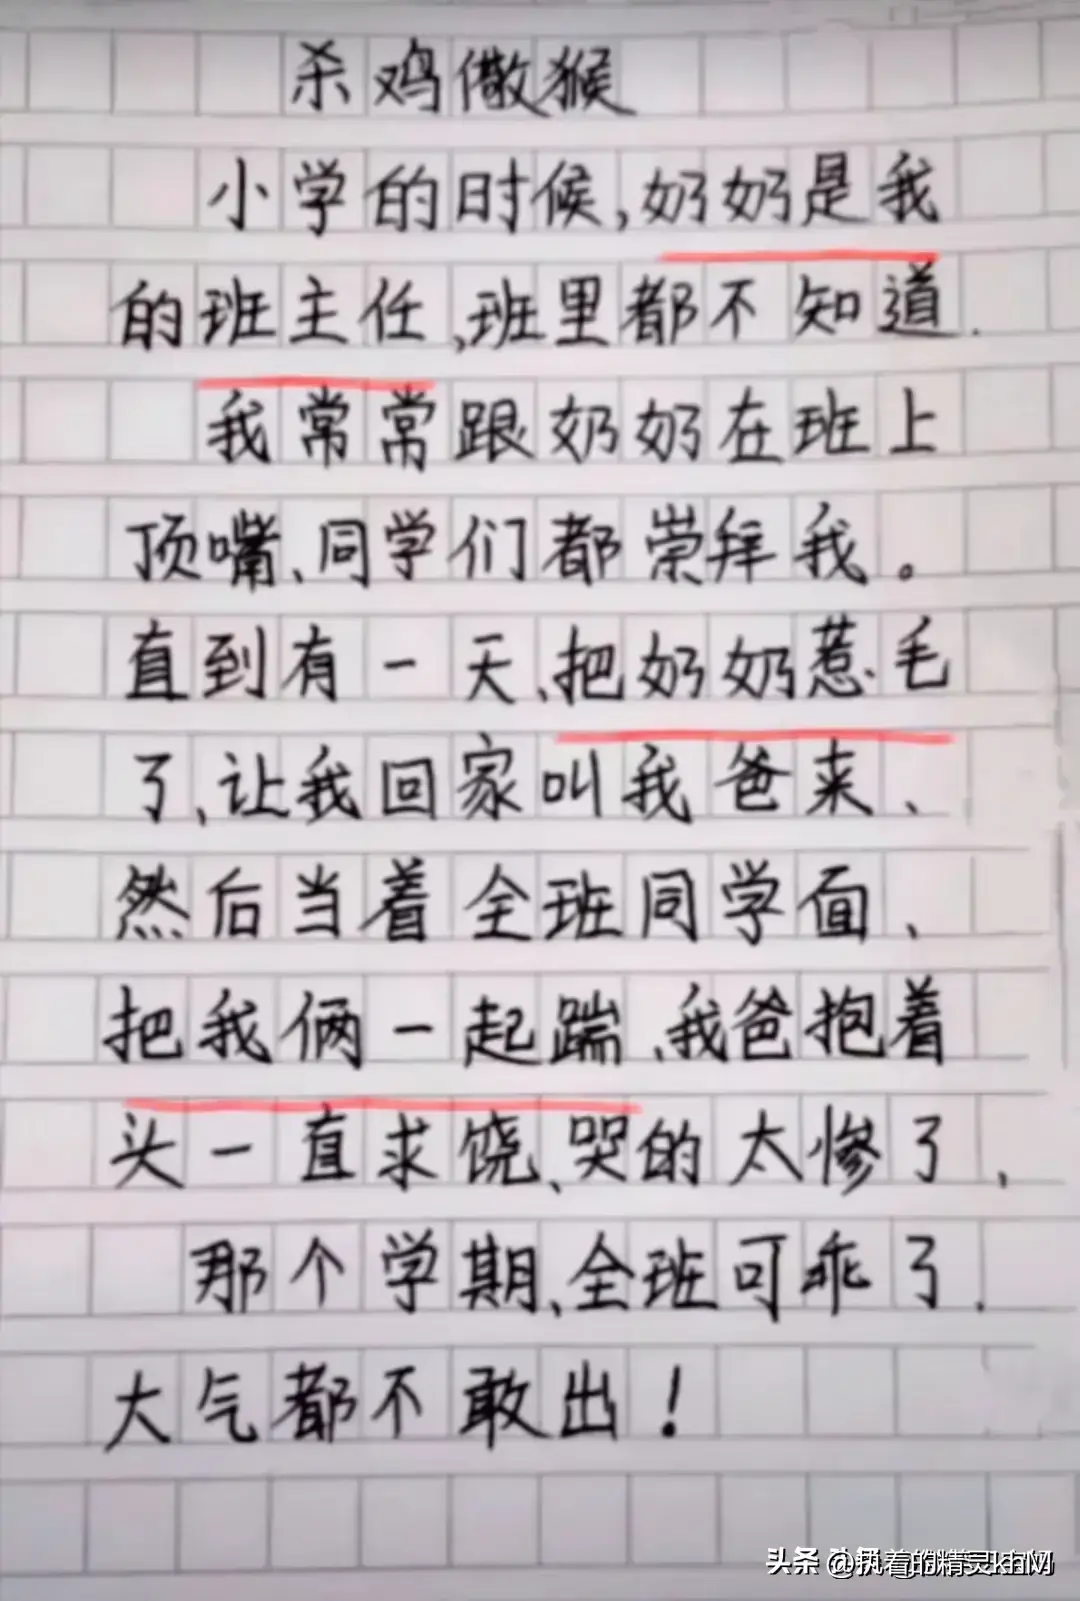 杀鸡儆猴
小学的时候,奶奶是我
的班主任,班里都不知道.
我常常跟奶奶在班上
顶嘴、同学们都崇拜我。
直到有一天、把奶奶惹毛
了、让我回家叫我爸来、
然后当着全班同学面、
把我俩一起踹、我爸抱着
头一直求饶、哭的太惨了、
那个学期、全班可乖了.
大气都不敢出!
头条 @执着的精灵